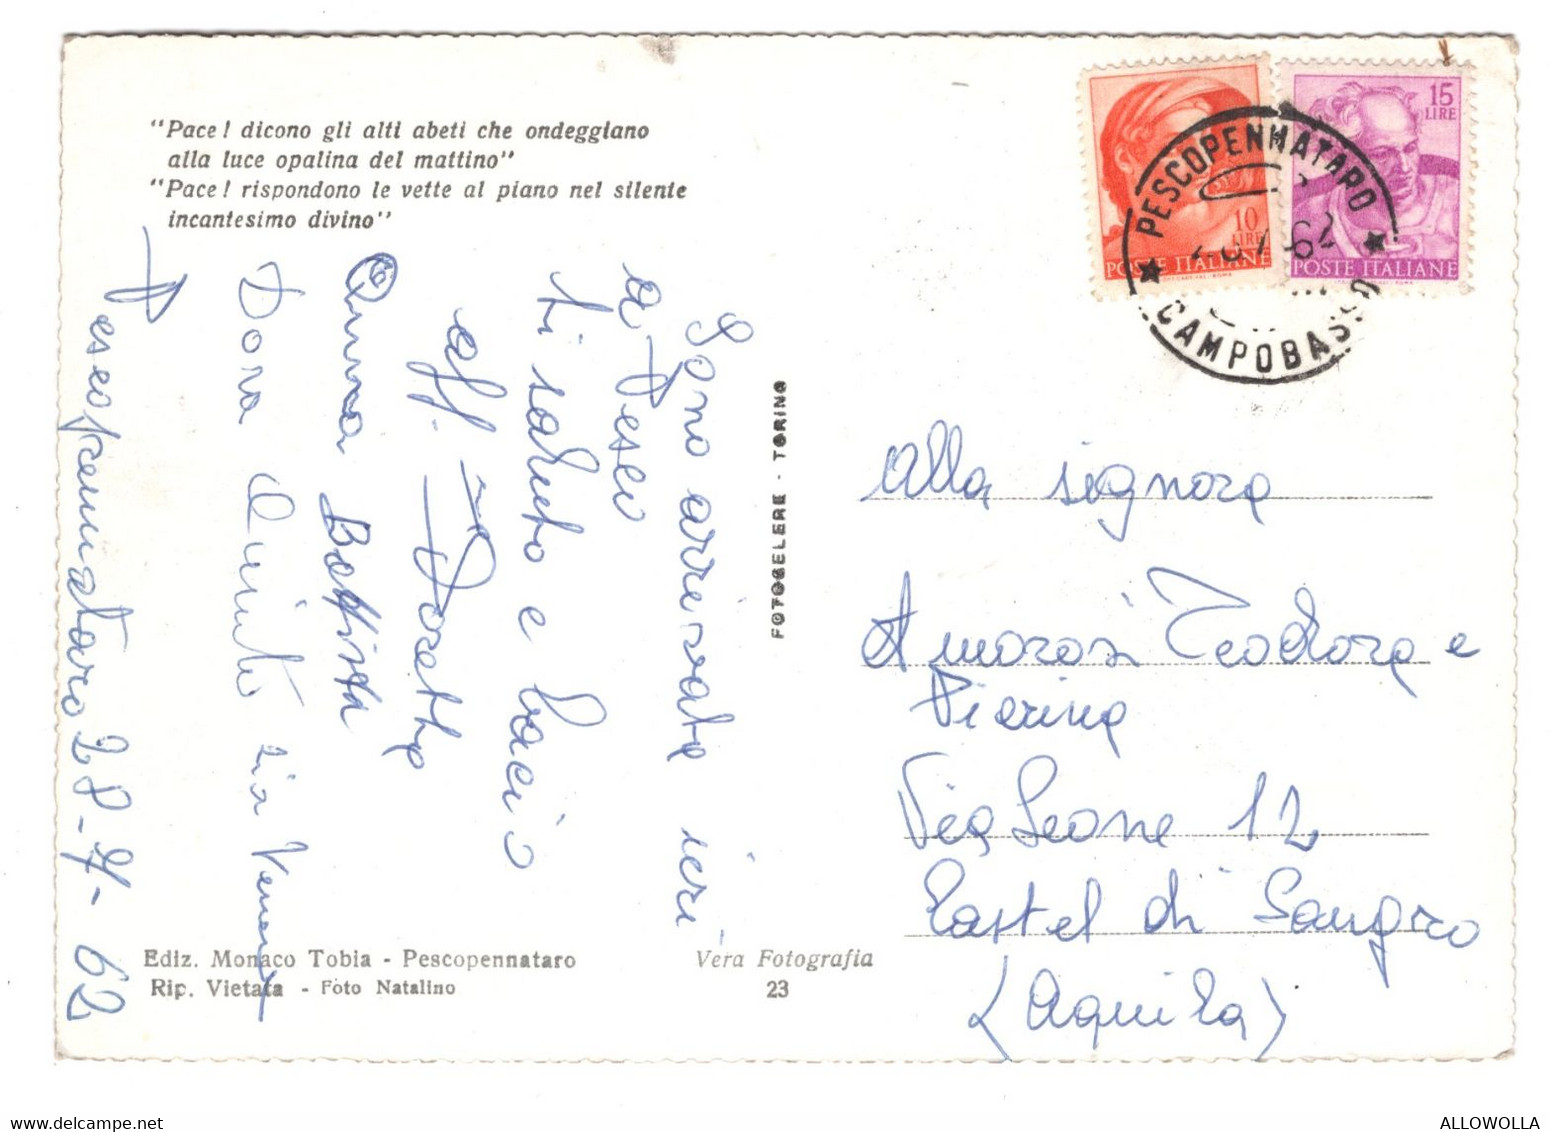 "Pace! dicono gli alti abeti che ondeggiano
alla luce opalina del mattino"
"Pace! rispondono le vette al piano nel silente
incantesimo divino"
10
LIRE
POSTE ITALIANE
15
LIRE
POSTE ITALIANE
PESCOPENNATARO
CAMPOBASSO
Sono arrivata ieri
a Pesco
ti saluto e bacio
aff. Doretta
Anna Battista
Dora
Pescopennataro 28-7-62
FOTOCELERE - TORINO
Alla signora
Amorosi Teodora e
Pierina
Via Leone 12
Castel di Sangro
(Aquila)
Ediz. Monaco Tobia - Pescopennataro
Rip. Vietata - Foto Natalino
Vera Fotografia
23
ALLOWOLLA